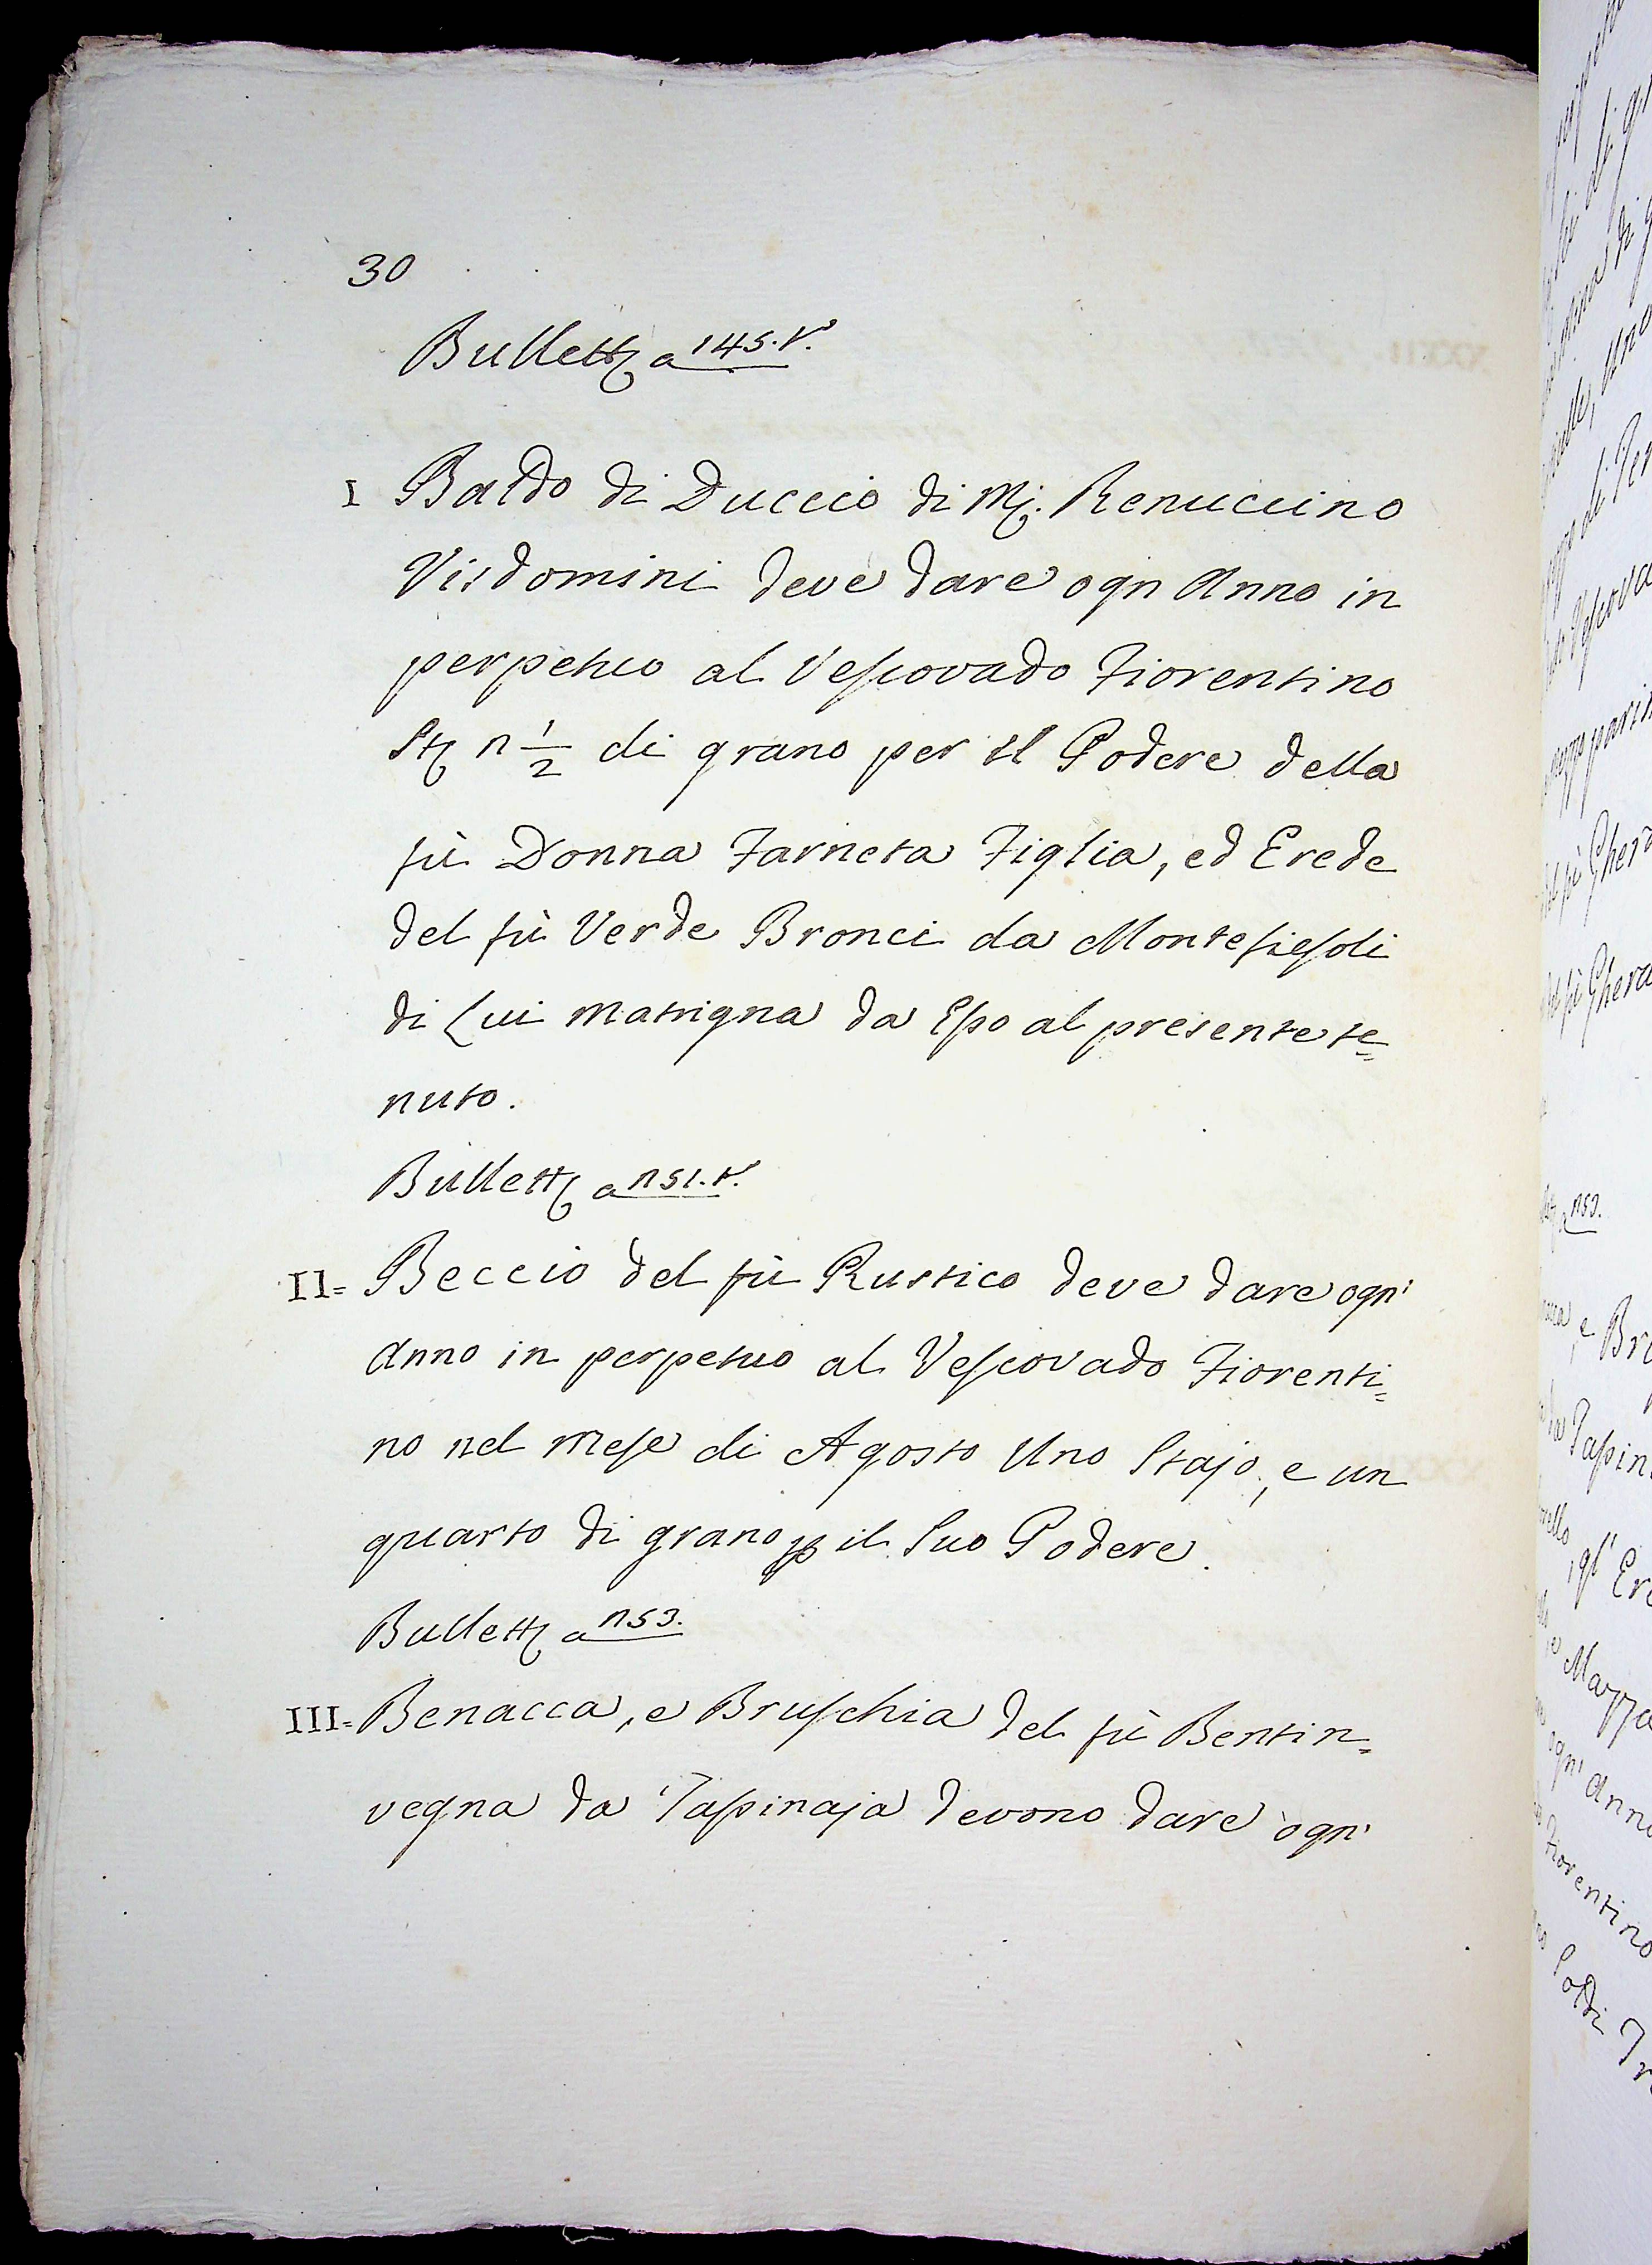 30
Bullett a 145. v.
I Baldo di Duccio di Mj. Renuccino
Visdomini deve dare ogn Anno in
perpetuo al Vescovado Fiorentino
St n 1/2 di grano per il Podere della
fù Donna Farneta Figlia, ed Erede
del fù Verde Bronci da Montefiesoli
di Lui Matrigna da Esso al presente te=
nuto.
Bullett a n 51. v.
II= Beccio del fù Rustico deve dare ogn'
Anno in perpetuo al Vescovado Fiorenti=
no nel Mese di Agosto Uno Stajo, e un
quarto di grano p il Suo Podere.
Bullett a n 53.
III= Benacca, e Bruschia del fù Bentin=
vegna da Tassinaja devono dare ogn'